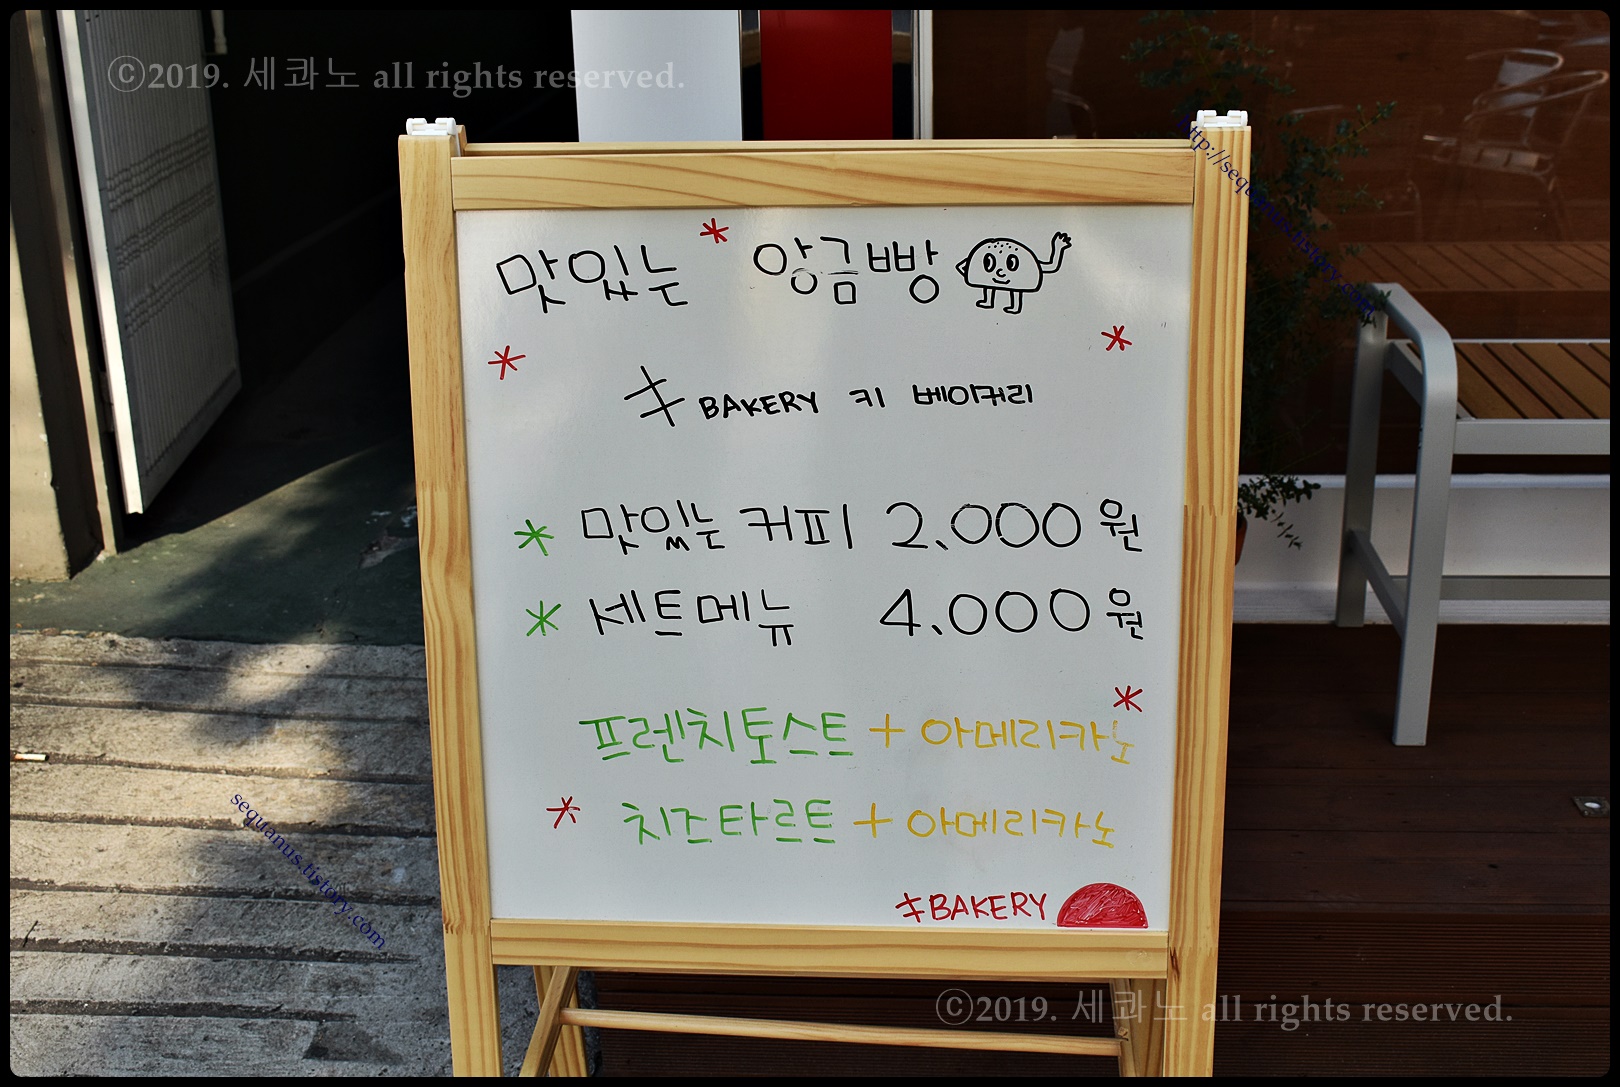 ©2019. 세콰노 all rights reserved.
http://sequanus.tistory.com
맛있는 * 앙금빵
* *
キBAKERY 키 베이커리
* 맛있는 커피 2,000원
* 세트메뉴 4,000원
*
프렌치토스트 + 아메리카노
* 치즈타르트 + 아메리카노
キBAKERY
sequanus.tistory.com
©2019. 세콰노 all rights reserved.